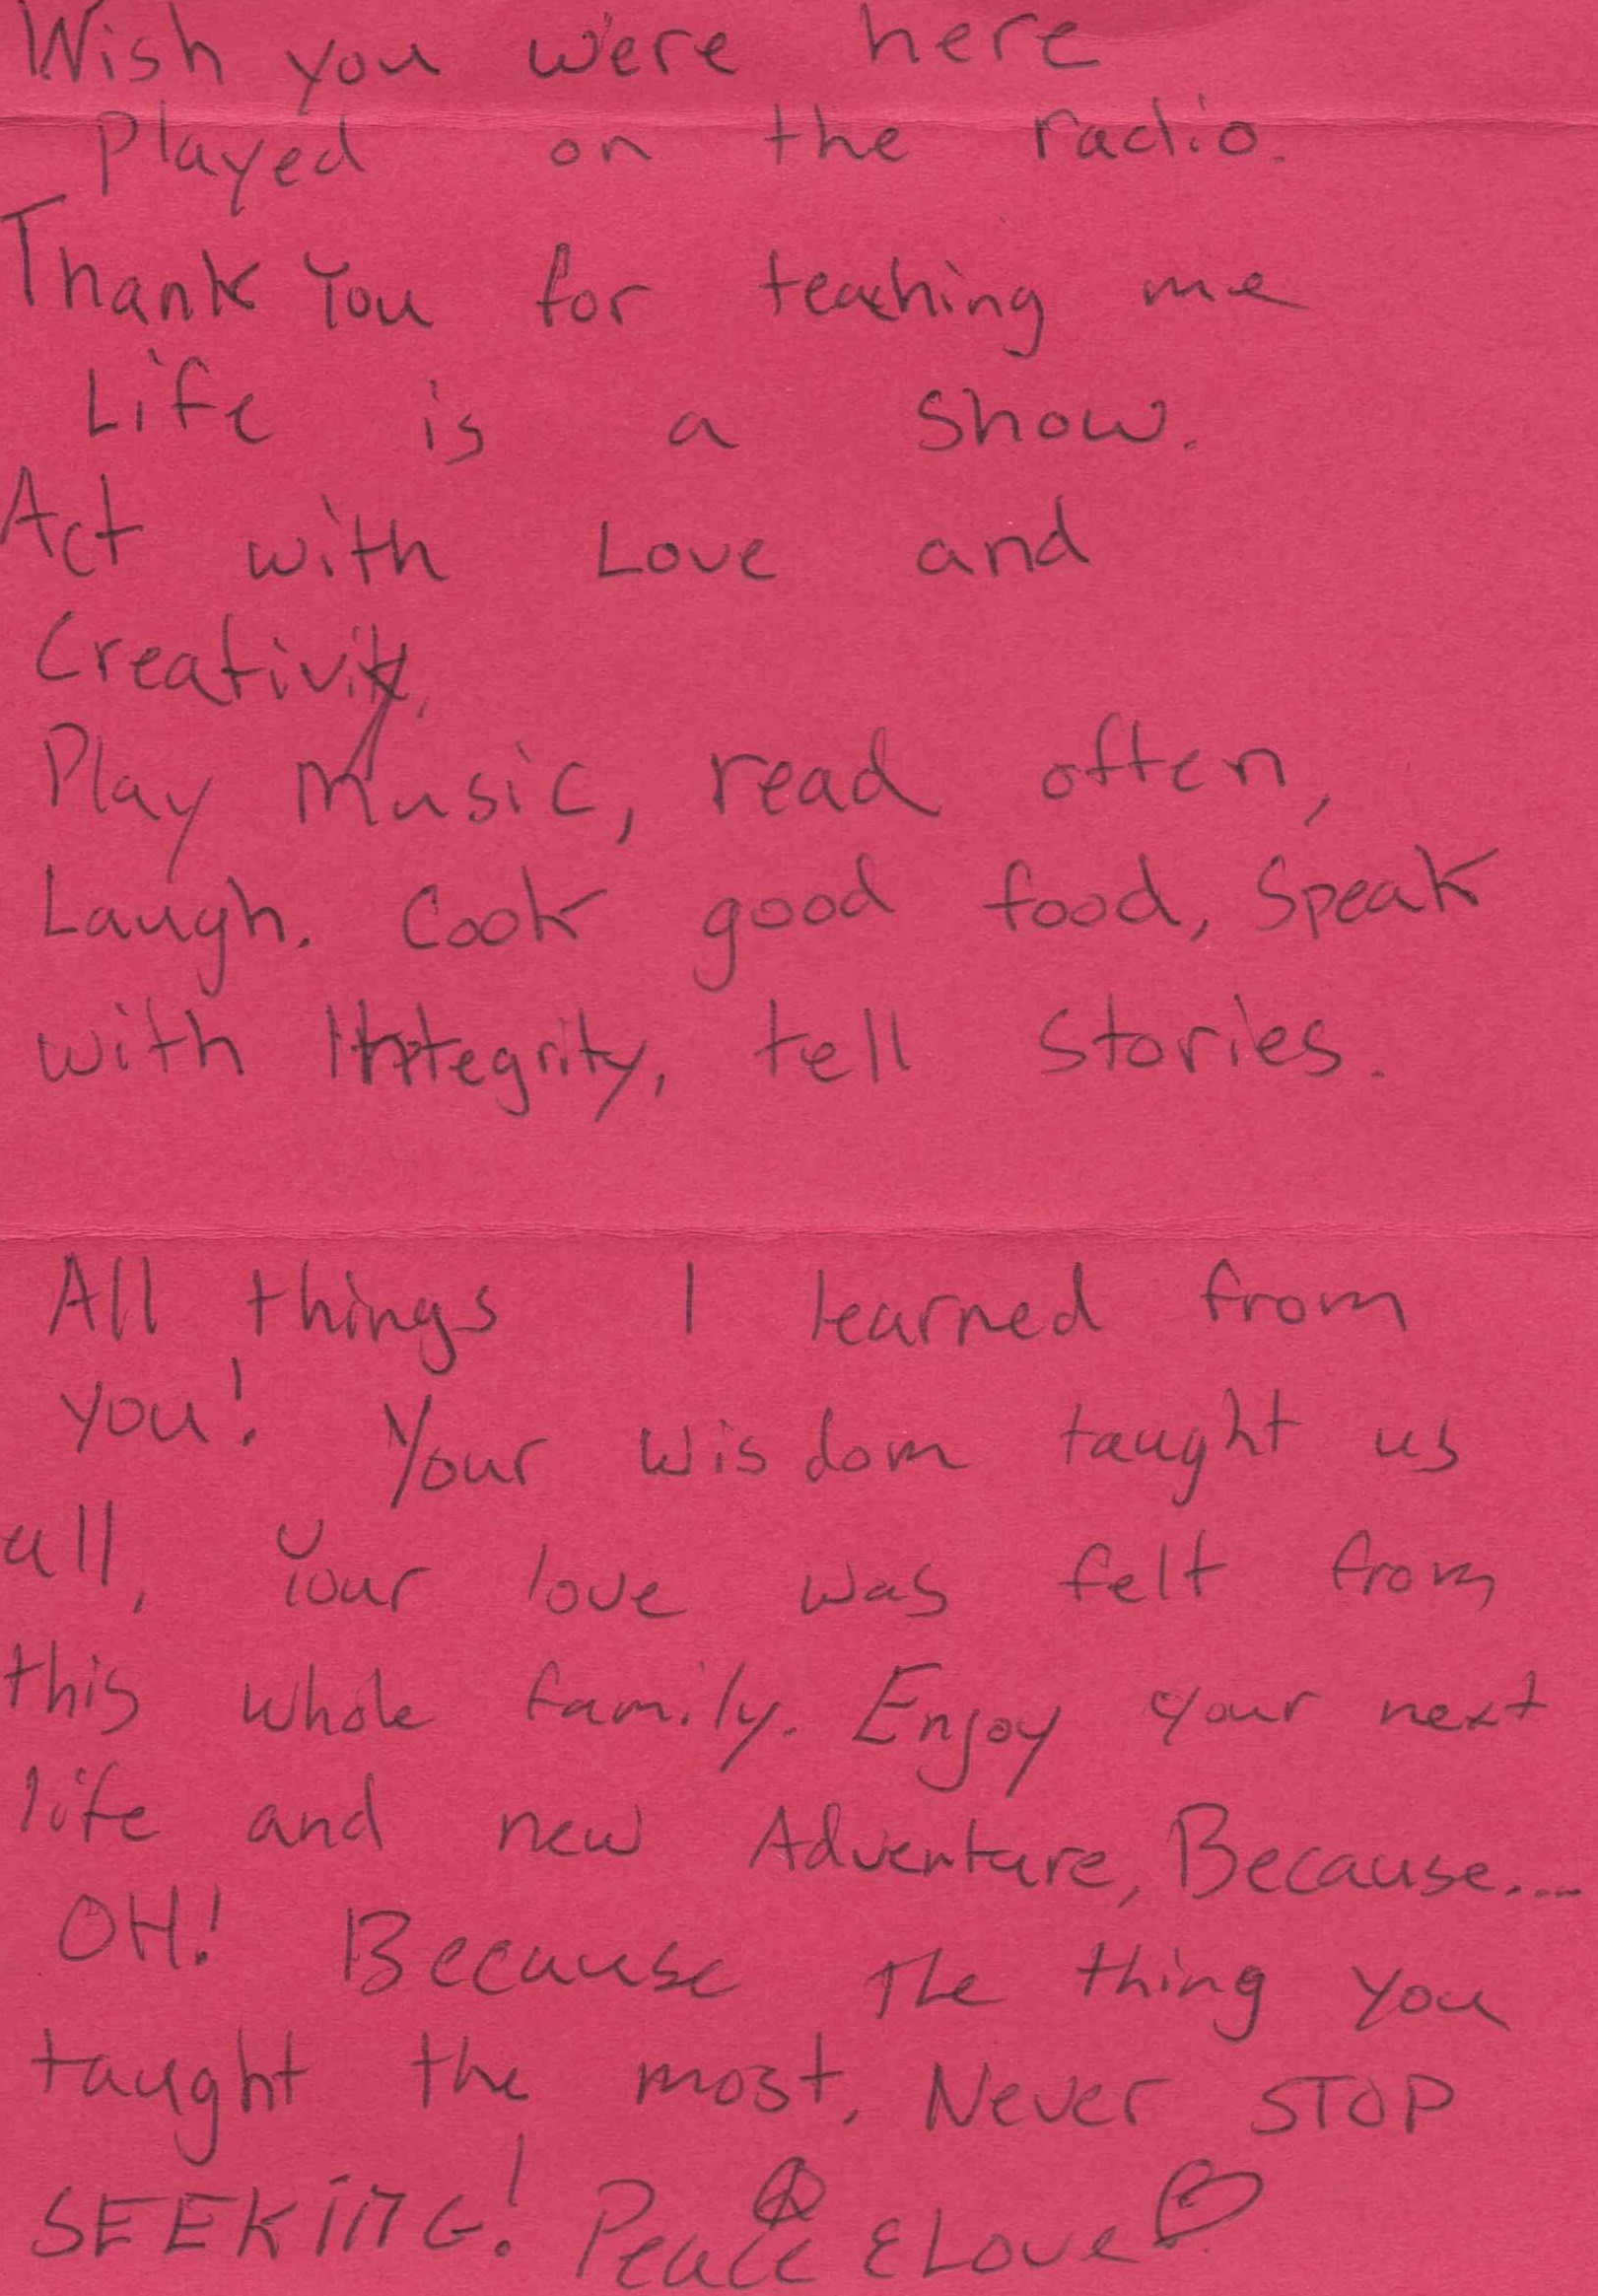 Wish you were here
Played on the radio.
Thank You for teaching me
Life is a show.
Act with Love and
Creativity,
Play Music, read often,
Laugh. Cook good food, Speak
with Integrity, tell stories.
All things I learned from
you! Your wisdom taught us
all, Your love was felt from
this whole family. Enjoy your next
life and new Adventure, Because....
OH! Because the thing you
taught the most, Never STOP
SEEKING! Peace & Love